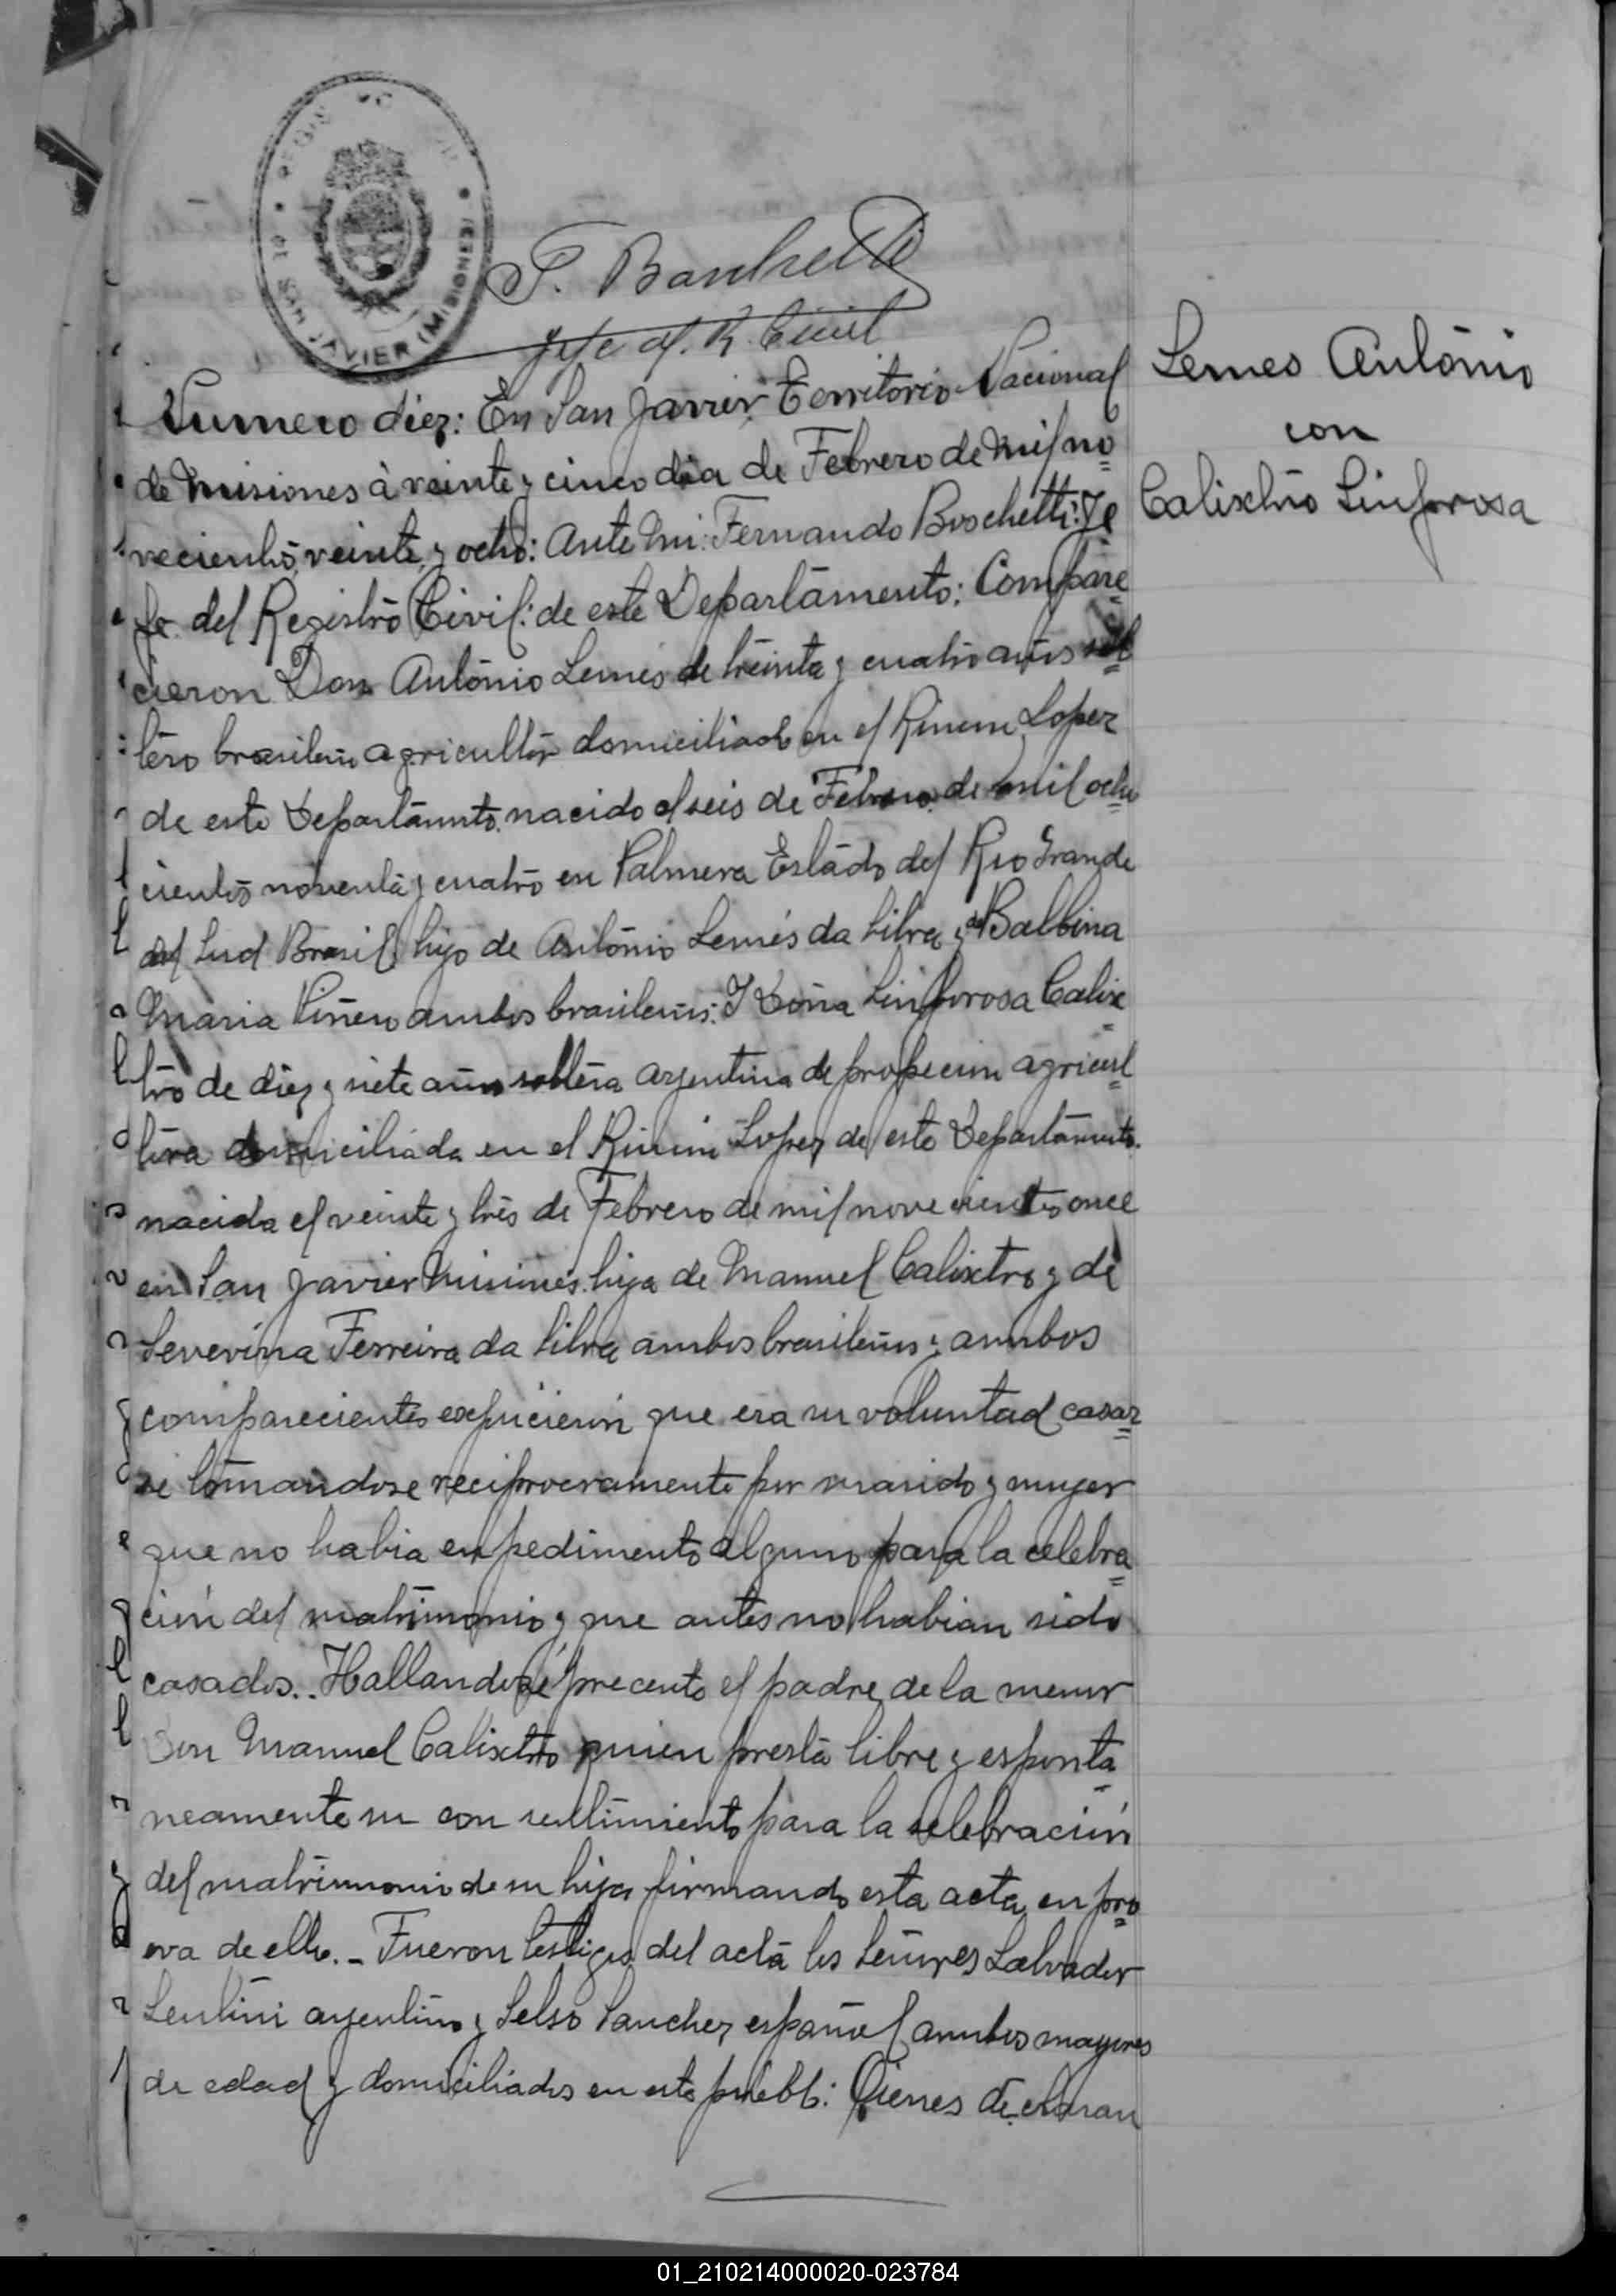 SAN JAVIER (MISIONES)
Jefe del R. Civil
Lemes António
con
Calixtro Sinforosa
Numero diez: En San Javier Territorio Nacional
de Misiones à veinte y cinco dia de Febrero de mil no
vecientos, veinte y ocho: Ante Mi: Fernando Boschetti: Je
fe del Registro Civil: de este Departamento: Compare
cieron Don António Lemes de treinta y cuatro años sol
tero brasileño agricultor domiciliado en el Rincon Lopez
de este Departamento. nacido el seis de Febrero de mil ocho
cientos noventa y cuatro en Palmera Estado del Rio Grande
del Sud Brasil hijo de António Lemes da Silva y de Balbina
Maria Piñero ambos brasileños: Y Doña Sinforosa Calix
tro de diez y siete años soltera argentina de profecion agricul
tora domiciliada en el Rincon Lopez de este Departamento.
nacida el veinte y tres de Febrero de mil novecientos once
en San Javier Misiones. hija de Manuel Calixtro y de
Severina Ferreira da Silva ambos brasileños y ambos
comparecientes expucieron que era su voluntad casar
se tomandose reciprocramente por marido y muger
que no habia enpedimento alguno para la celebra
cion del matrimonio y que antes no habian sido
casados.. Hallandose precente el padre de la menor
Don Manuel Calixtro quien presta libre y esponta
neamente su con sentimiento para la selebracion
del matrimonio de su hija firmando esta acta en pro
eva de ello.- Fueron testigos del acta los Señores Salvador
Lentini argentino y Selso Sanchez español ambos mayores
de edad y domiciliados en este pueblo: Qienes declaran
01_210214000020-023784